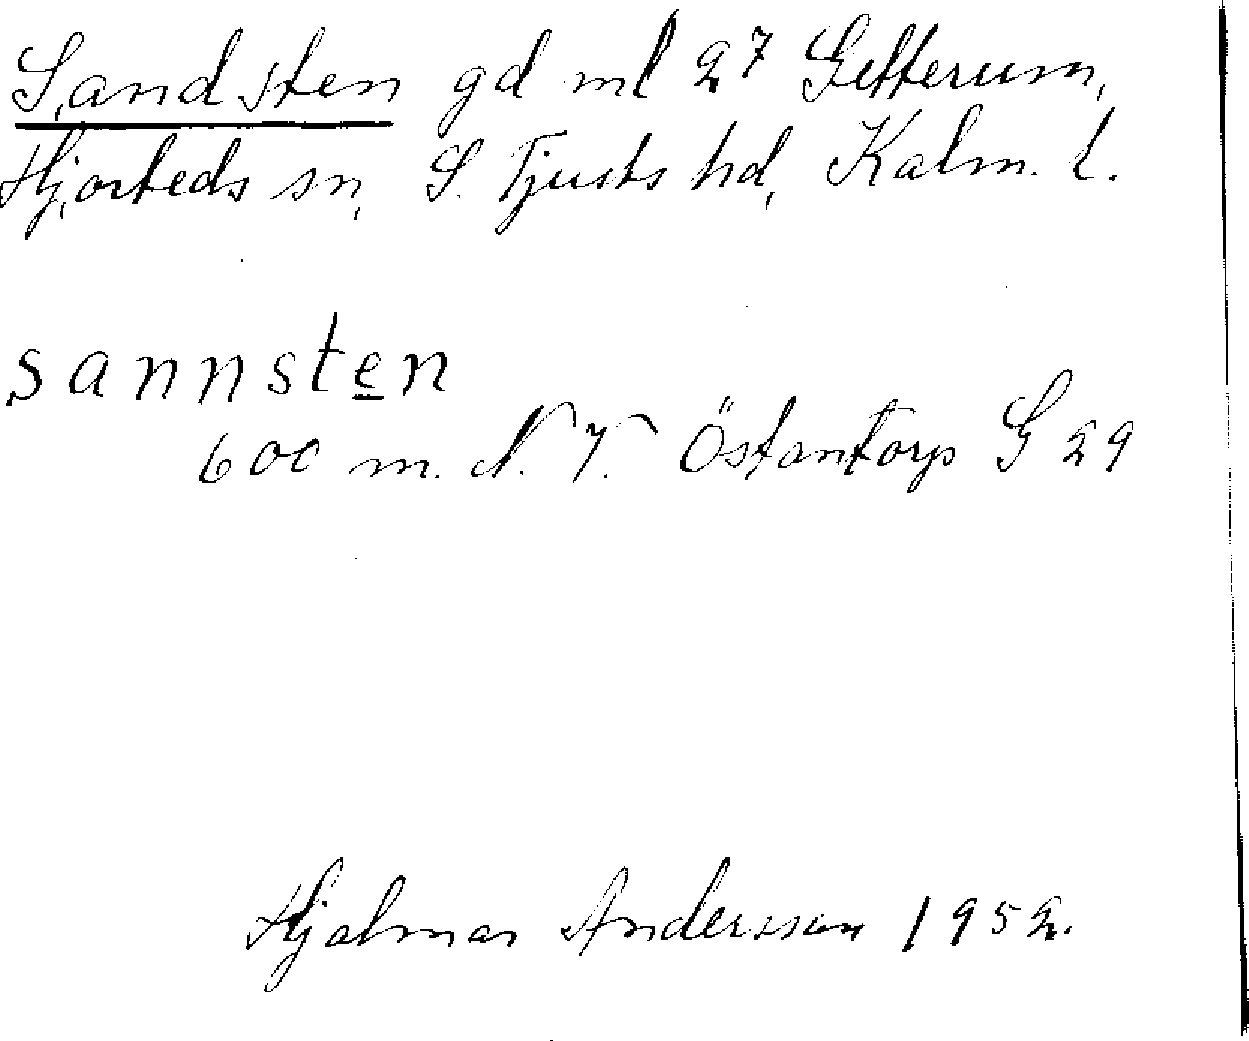 Sandsten gd ml 27 Getterum,
Hjorteds sn, S. Tjusts hd, Kalm. l.
sannsten
600 m. N. V. Östantorp G 29
Hjalmar Andersson 1952.